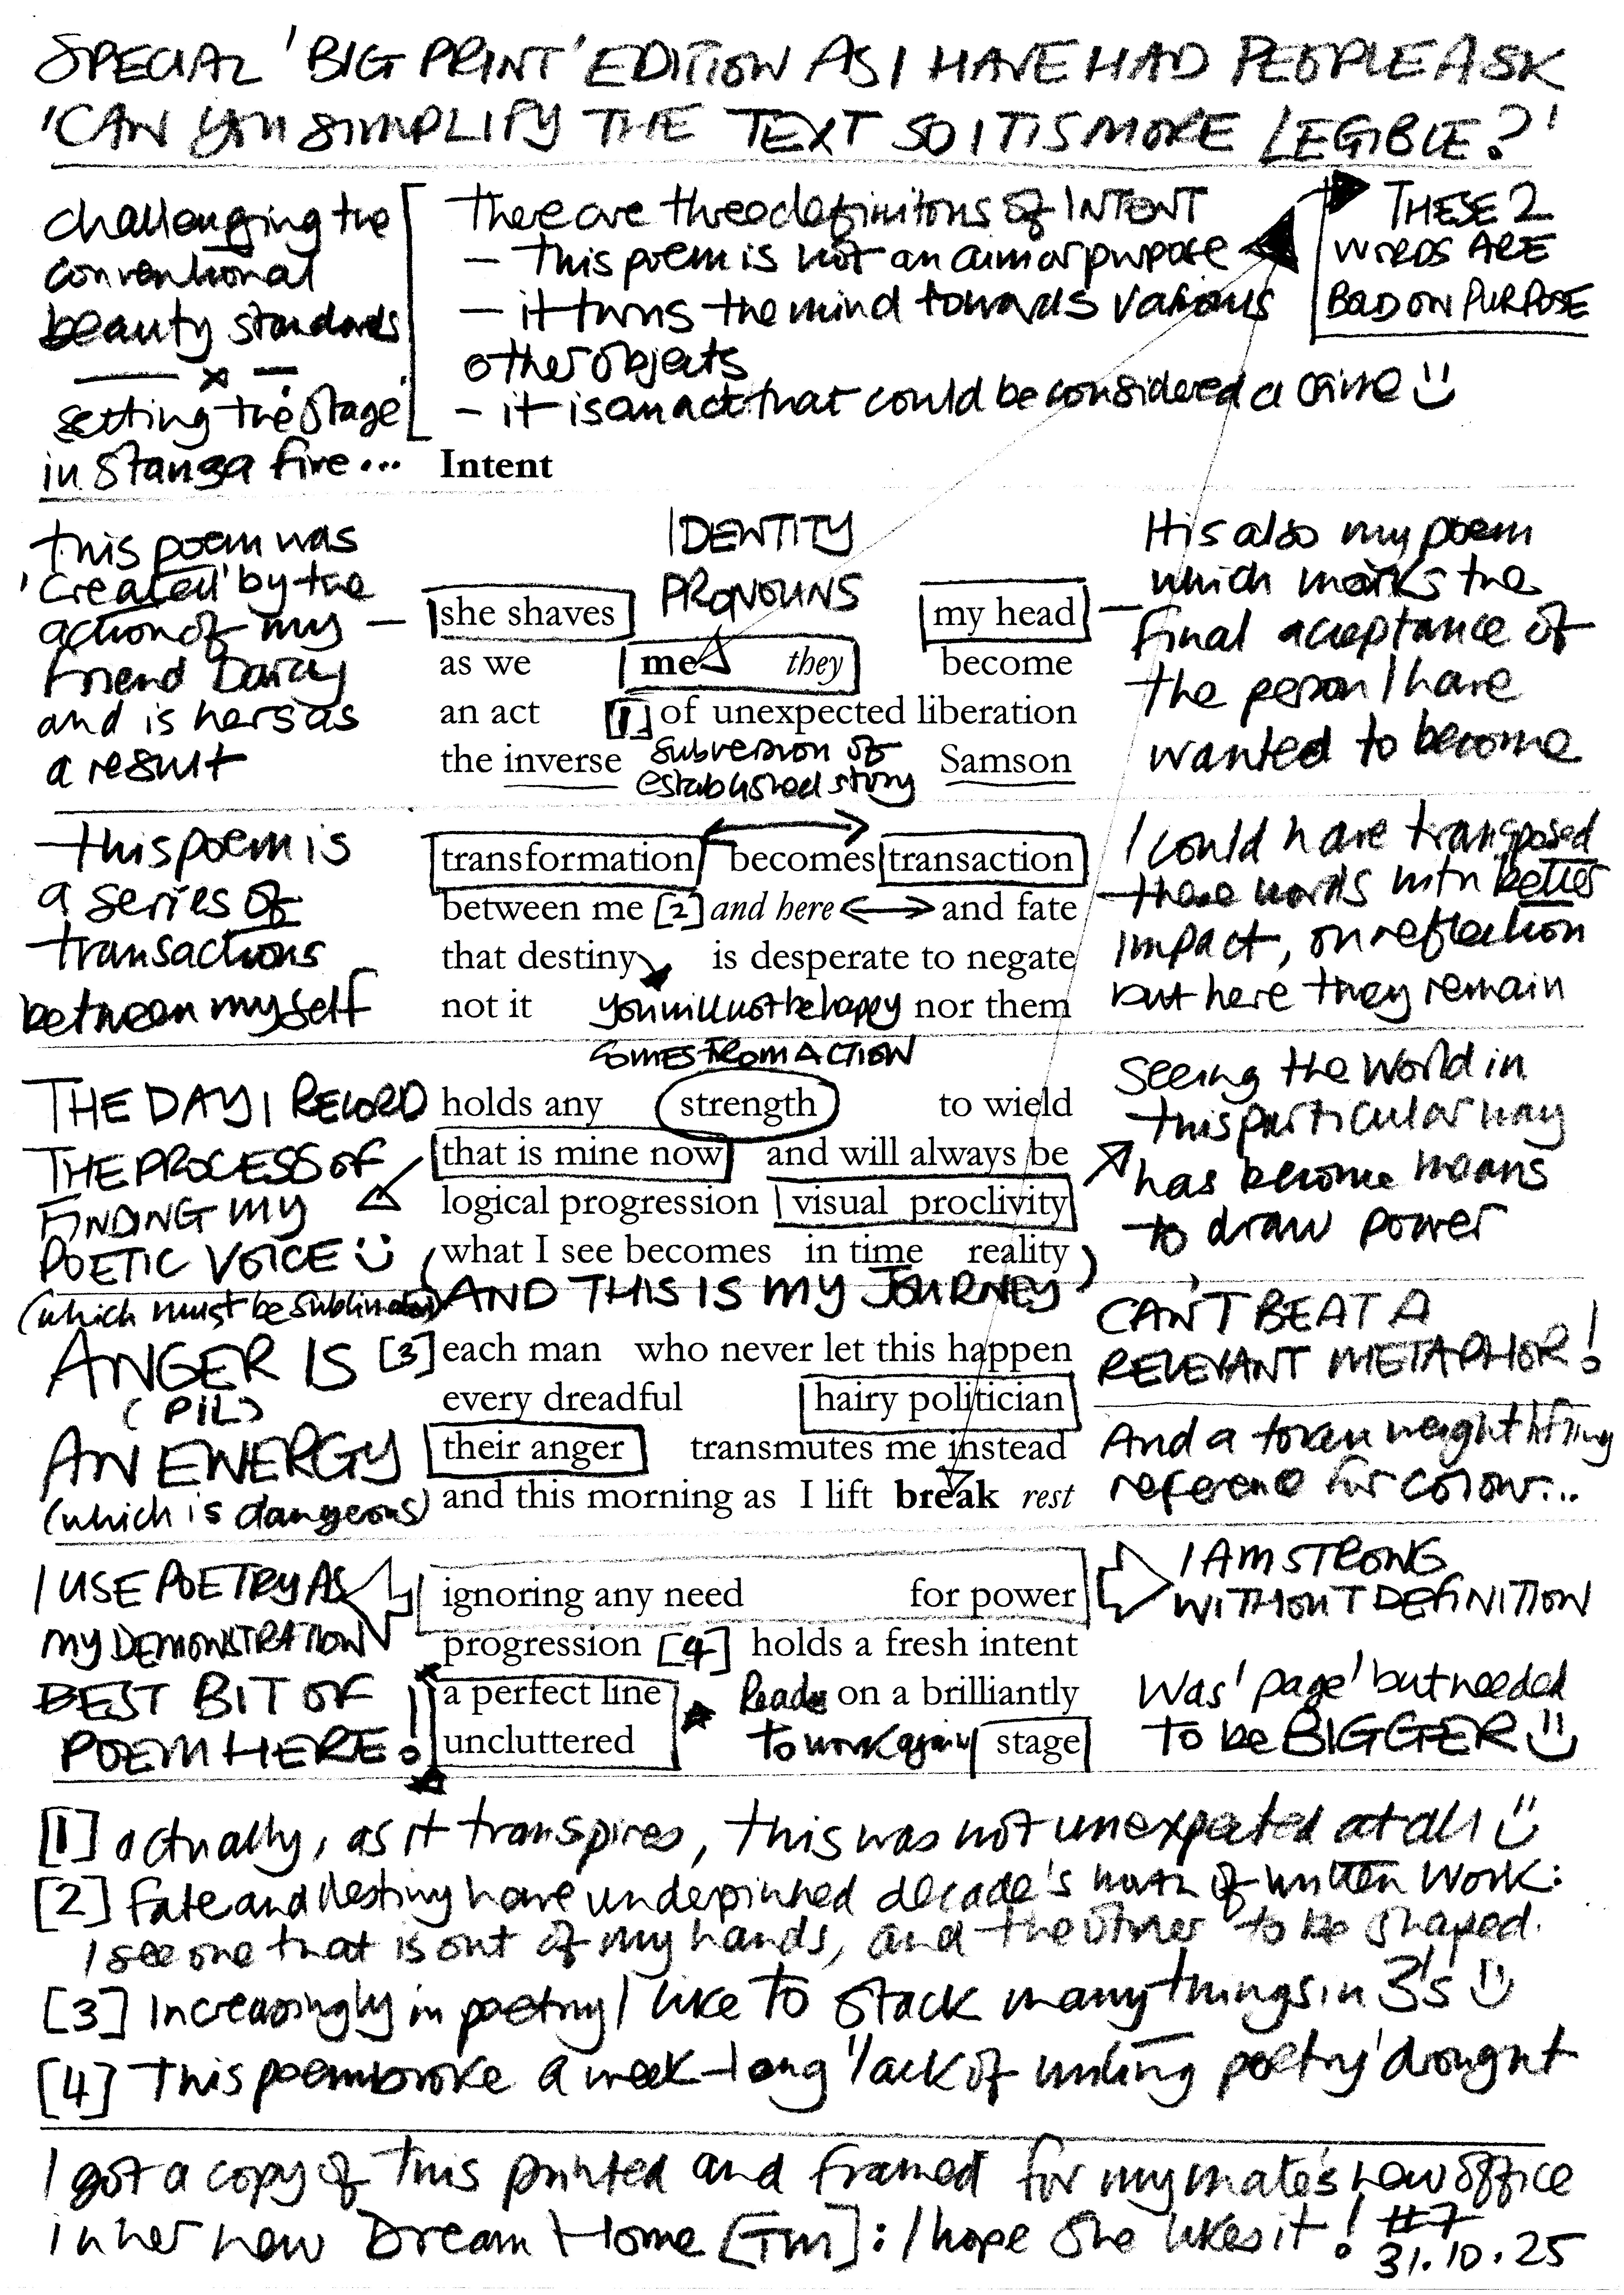 SPECIAL 'BIG PRINT' EDITION AS I HAVE HAD PEOPLE ASK
'CAN YOU SIMPLIFY THE TEXT SO IT IS MORE LEGIBLE?'
challenging the
conventional
beauty standards
setting the stage
in stanza five...
There are three definitions of INTENT
– this poem is not an aim or purpose
– it turns the mind towards various
other objects
– it is an act that could be considered a crime
THESE 2
WORDS ARE
BOLD ON PURPOSE
Intent
this poem was
'created' by the
action of my
friend Darcy
and is hers as
a result
IDENTITY
PRONOUNS
she shaves my head
as we me they become
an act [1] of unexpected liberation
the inverse subversion of Samson
established story
It is also my poem
which marks the
final acceptance of
the person I have
wanted to become
this poem is
a series of
transactions
between myself
transformation becomes transaction
between me [2] and here and fate
that destiny is desperate to negate
not it you will not be happy nor them
I could have transposed
these words with better
impact, on reflection
but here they remain
COMES FROM ACTION
THE DAY I RECORD
THE PROCESS OF
FINDING MY
POETIC VOICE
holds any strength to wield
that is mine now and will always be
logical progression visual proclivity
what I see becomes in time reality
AND THIS IS MY JOURNEY
Seeing the world in
this particular way
has become means
to draw power
(which must be sublimated)
ANGER IS
(PIL)
AN ENERGY
(which is dangerous)
[3] each man who never let this happen
every dreadful hairy politician
their anger transmutes me instead
and this morning as I lift break rest
CAN'T BEAT A
RELEVANT METAPHOR!
And a token weightlifting
reference for colour...
I USE POETRY AS
MY DEMONSTRATION
BEST BIT OF
POEM HERE!
ignoring any need for power
progression [4] holds a fresh intent
a perfect line Ready on a brilliantly
uncluttered to work again stage
I AM STRONG
WITHOUT DEFINITION
Was 'page' but needed
to be BIGGER
[1] actually, as it transpires, this was not unexpected at all
[2] Fate and destiny have underpinned decade's worth of written work:
I see one that is out of my hands, and the other to be shaped.
[3] Increasingly in poetry I like to stack many things in 3's
[4] This poem broke a week-long 'lack of writing poetry' drought
I got a copy of this printed and framed for my mate's new office
in her new Dream Home [TM]: I hope she likes it! #7
31.10.25